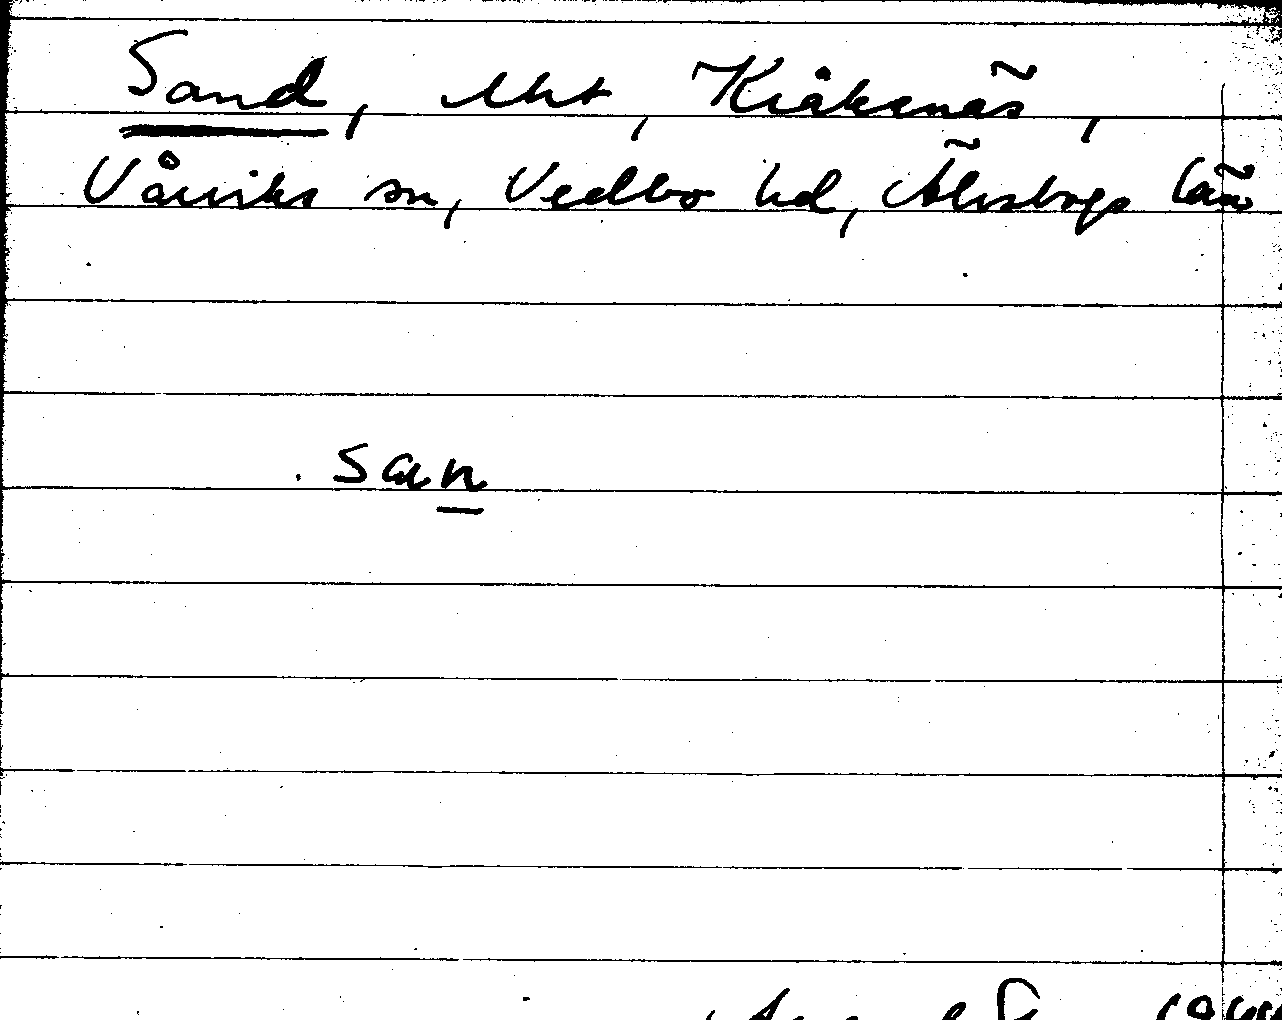 Sand, lht, Kråkenäs,
Vårviks sn, Vedbo hd, Älvsborgs län
san